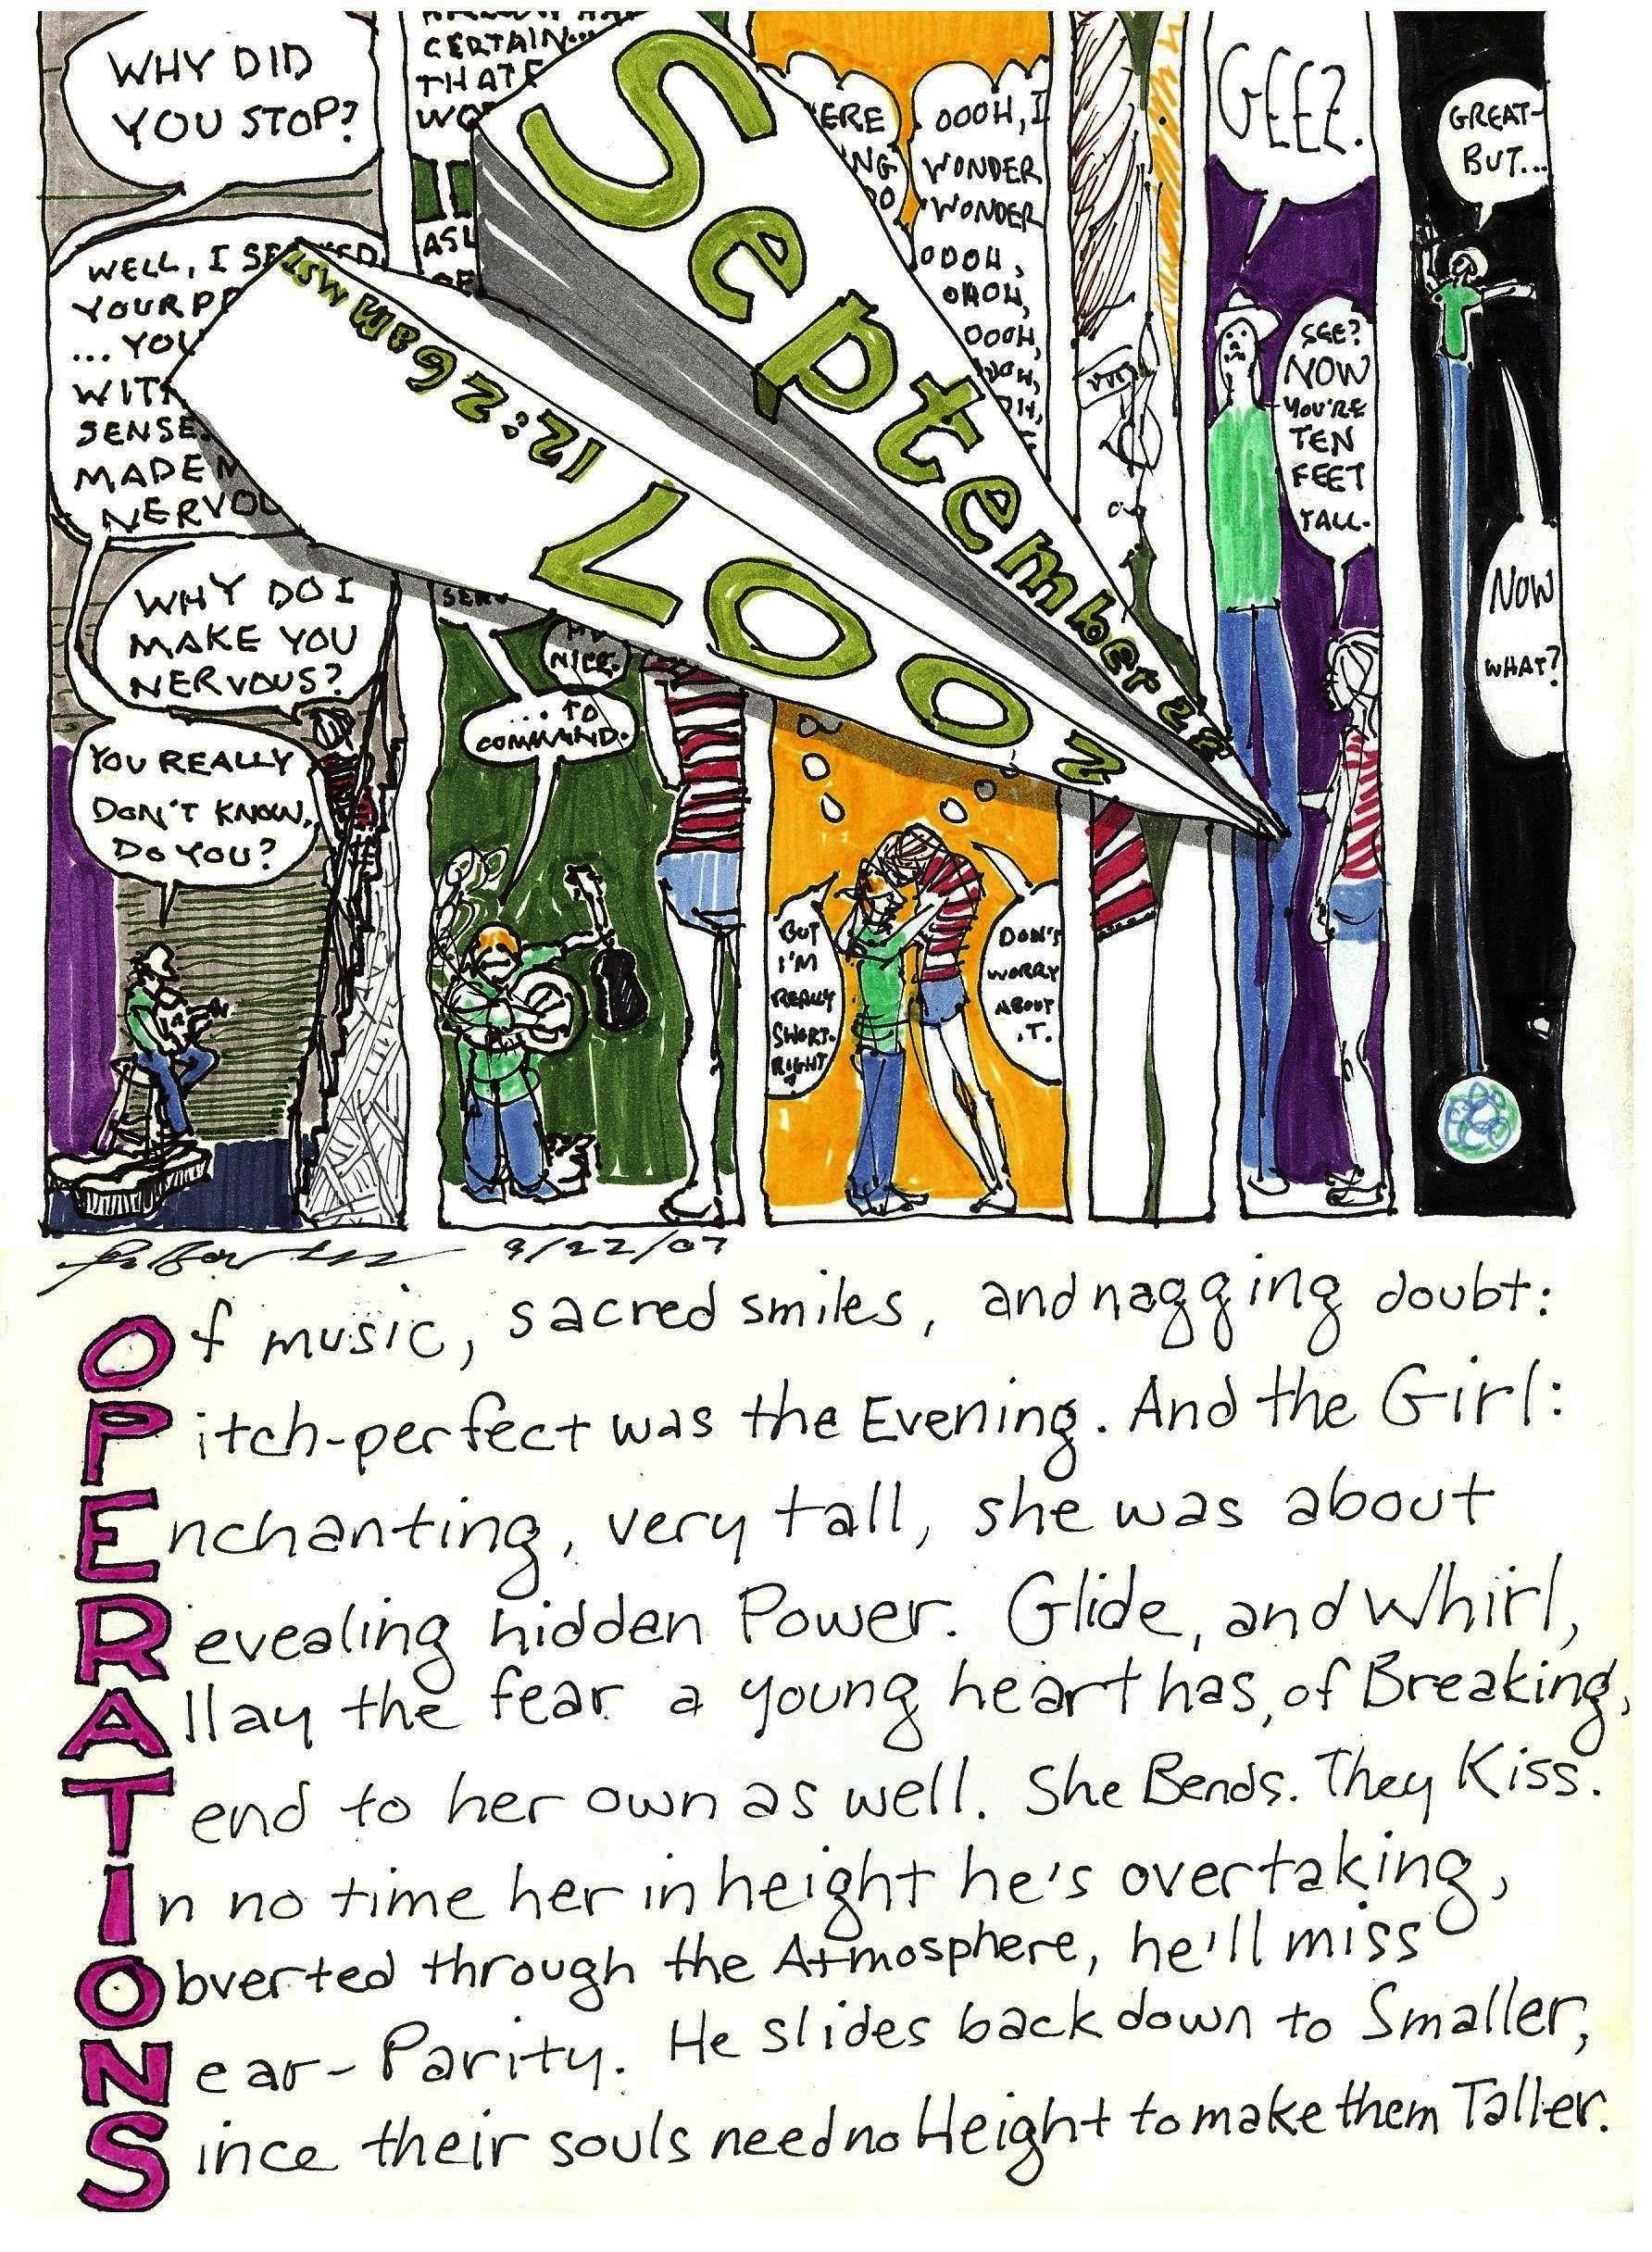 WHY DID
YOU STOP?
WELL, I
YOUR
... YOU
WITH
SENSE.
MADE
NERVOU
WHY DO I
MAKE YOU
NERVOUS?
YOU REALLY
DON'T KNOW,
DO YOU?
CERTAIN...
THAT
... TO
COMMAND.
NICE.
September 22
2007
12:26am MST
OOOH, I
WONDER
WONDER
OOOH,
OHOH,
OOOH,
BUT
I'M
REALLY
SHORT.
RIGHT?
DON'T
WORRY
ABOUT
IT.
GEEZ.
SEE?
NOW
YOU'RE
TEN
FEET
TALL.
GREAT-
BUT...
NOW
WHAT?
9/22/07
Of music, sacred smiles, and nagging doubt:
Pitch-perfect was the Evening. And the Girl:
Enchanting, very tall, she was about
Revealing hidden Power. Glide, and Whirl,
Allay the fear a young heart has, of Breaking,
Tend to her own as well. She Bends. They Kiss.
In no time her in height he's overtaking,
Obverted through the Atmosphere, he'll miss
Near-Parity. He slides back down to Smaller,
Since their souls need no Height to make them Taller.